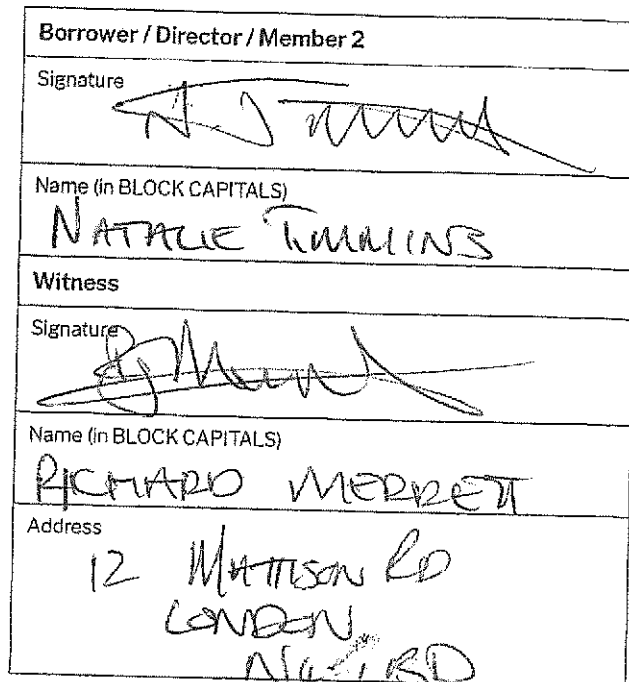 Borrower / Director / Member 2
Signature
Name (in BLOCK CAPITALS)
NATALIE TIMMINS
Witness
Signature
Name (in BLOCK CAPITALS)
RICHARD MERRETT
Address
12 MATTISON RD
LONDON